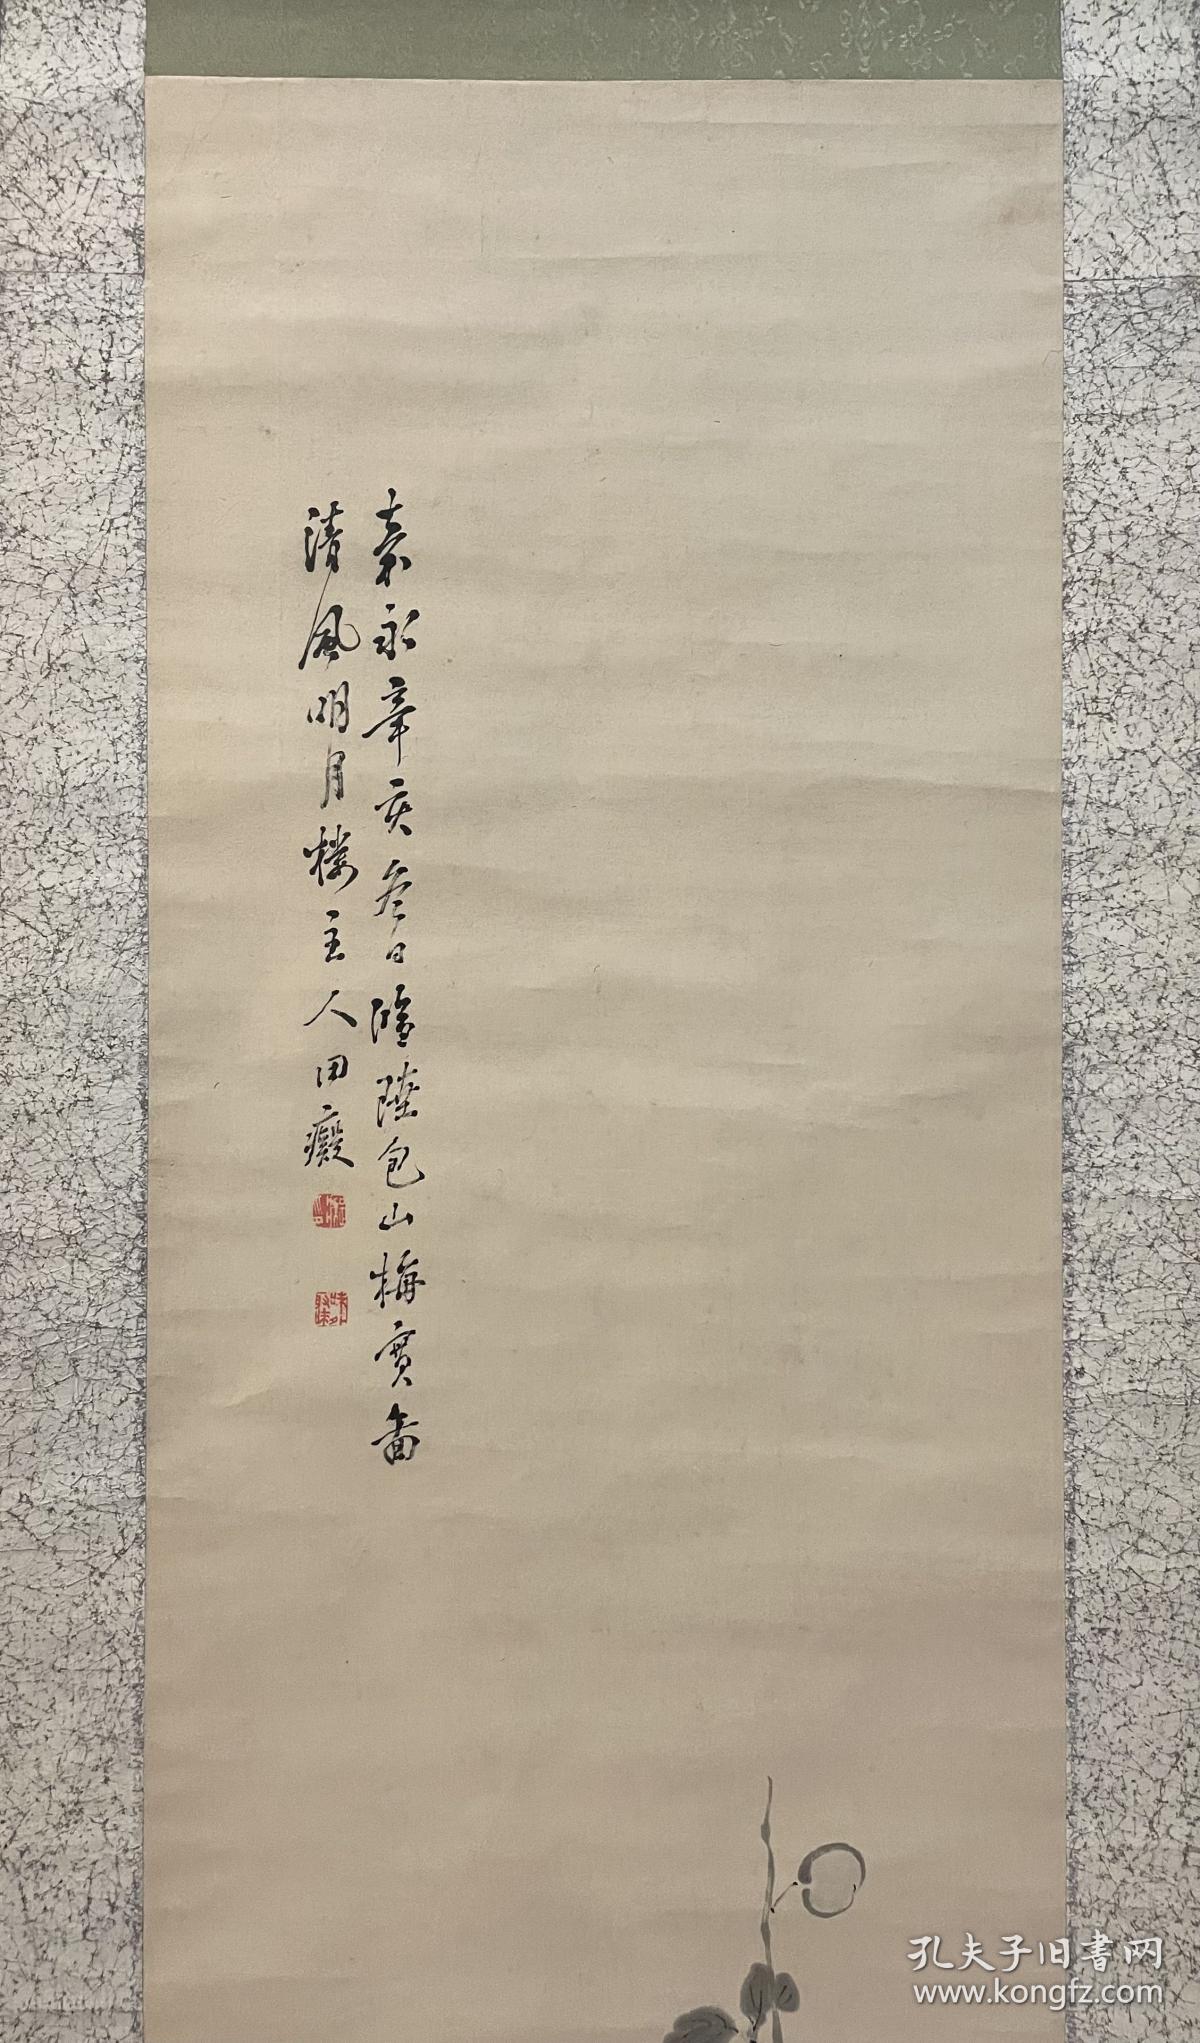 嘉永辛亥冬日臨陸包山梅實圖
清風明月樓主人田癡
孔夫子旧書网
www.kongfz.com